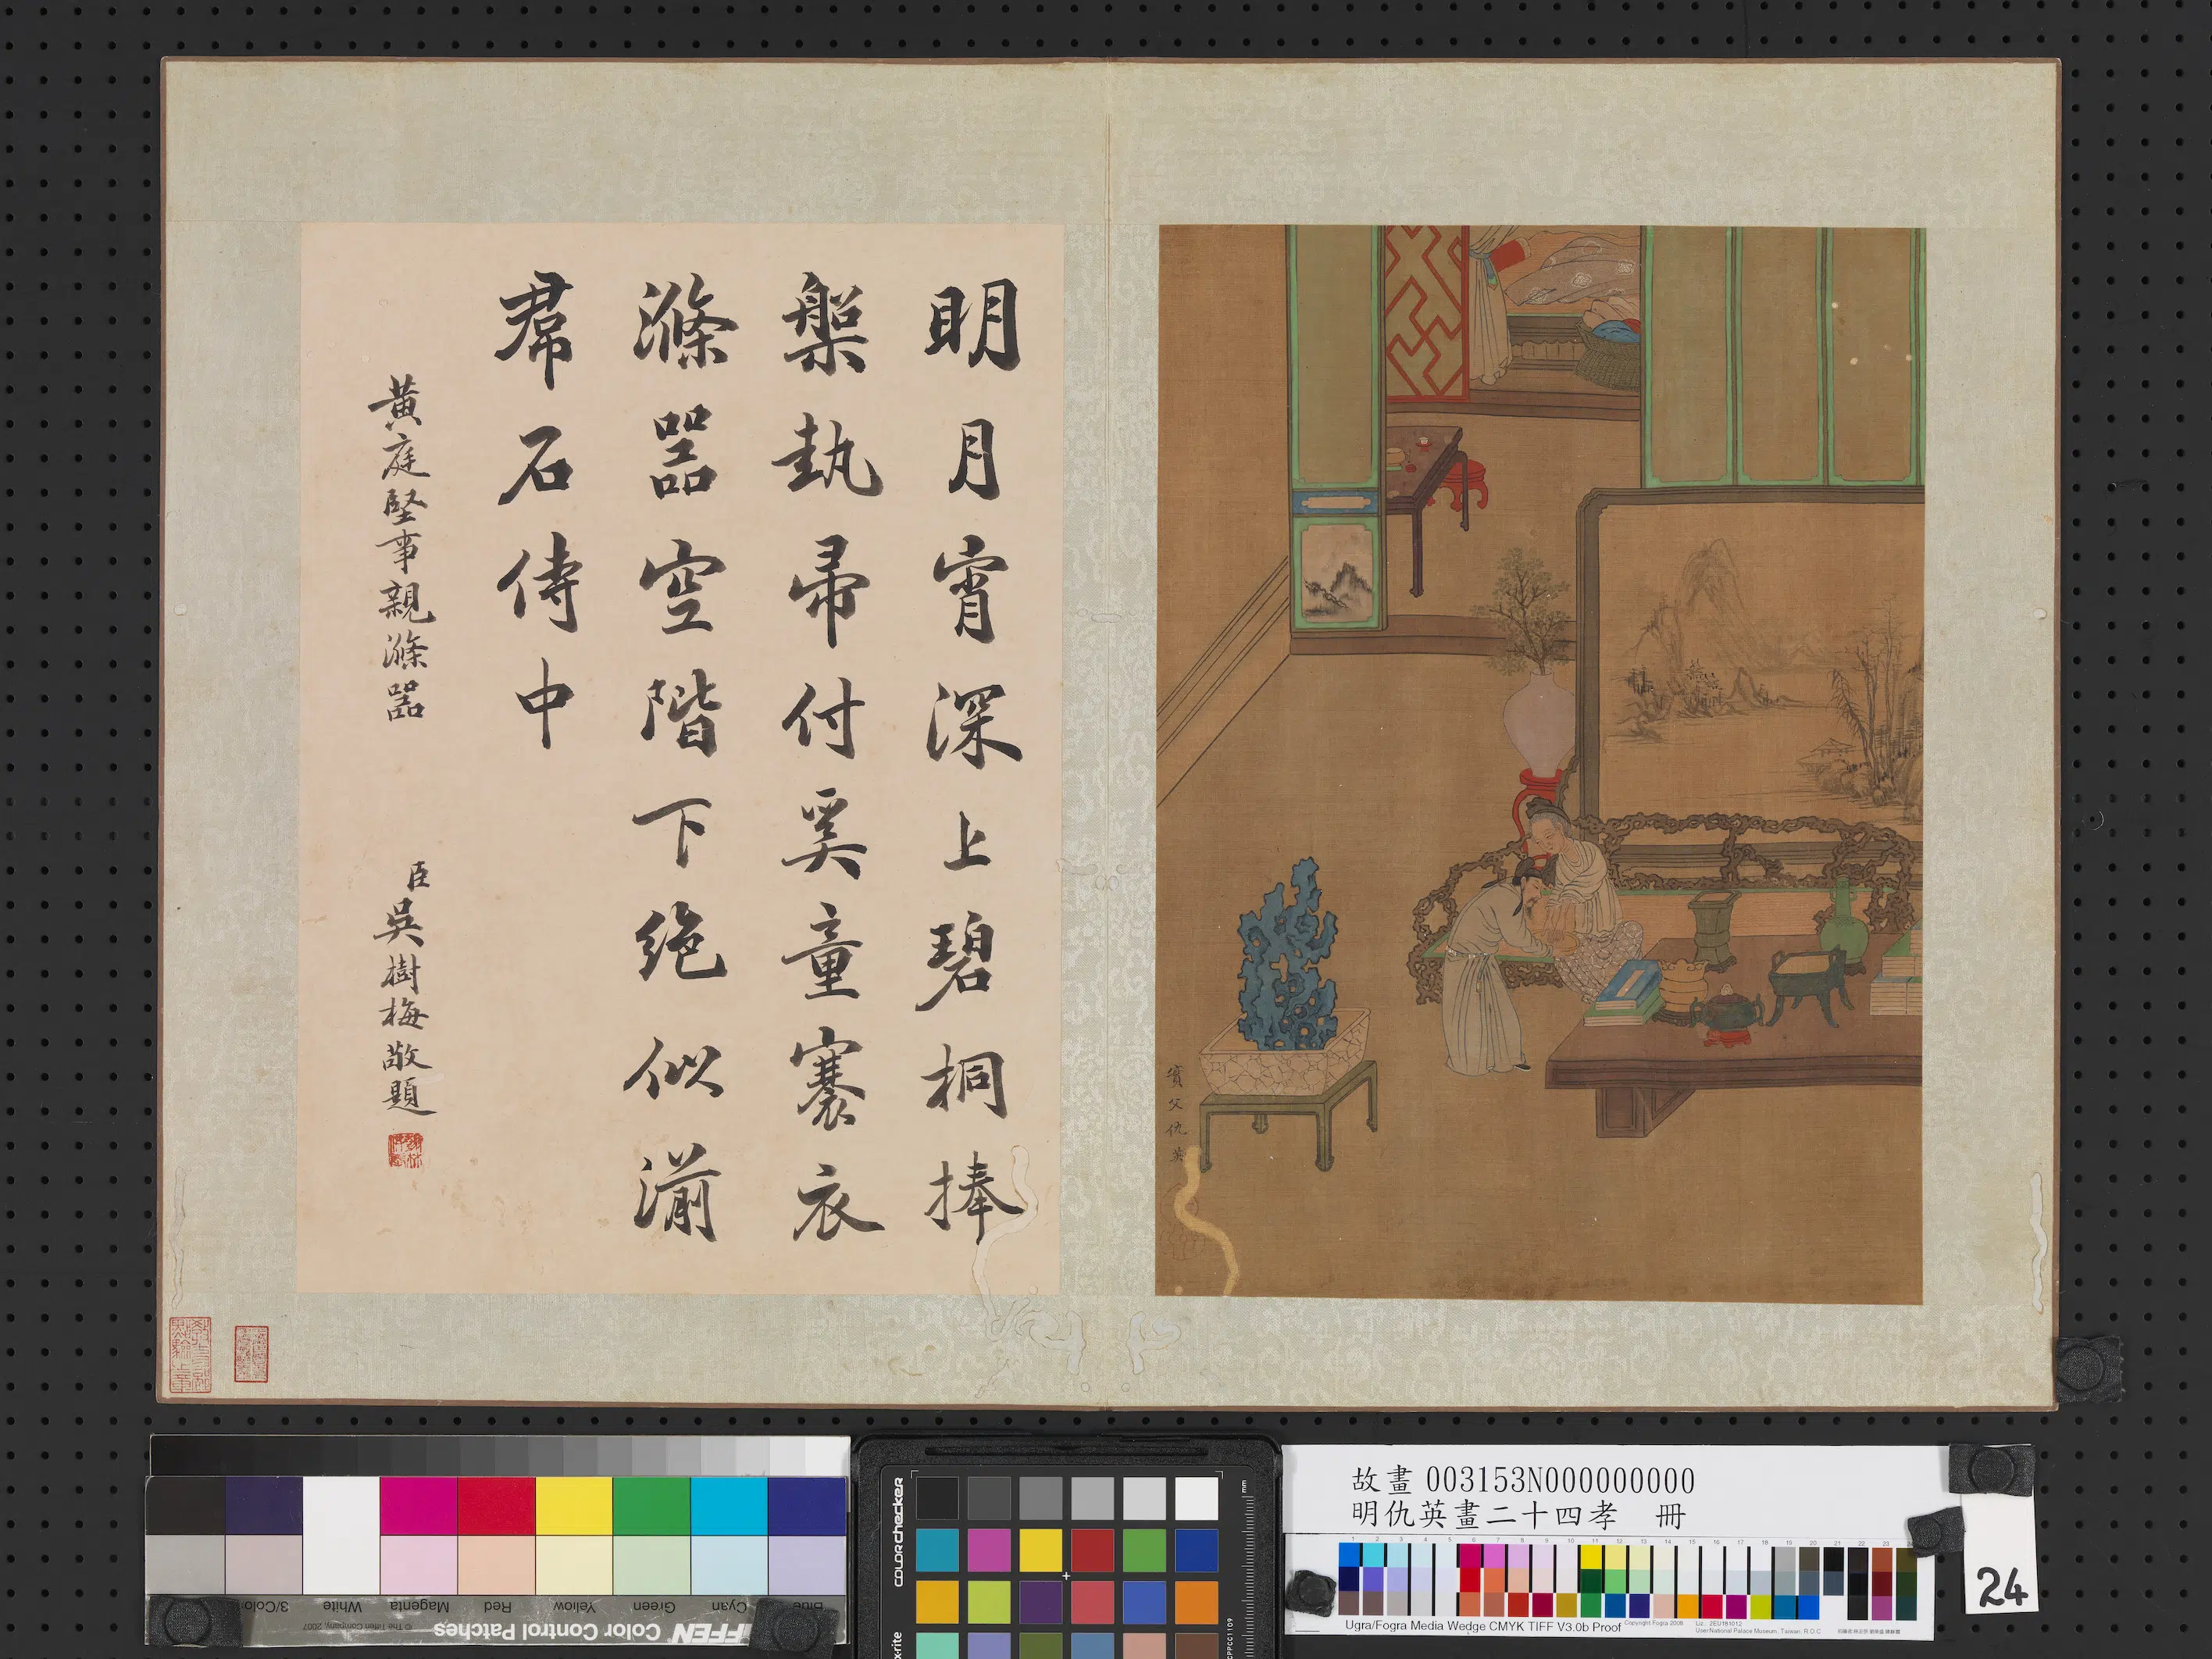 明月宵深上碧桐捧
槃執帚付奚童褰衣
滌器空階下絕似湔
帬石侍中
黃庭堅事親滌器
臣吳樹梅敬題
實父仇英
故畫 003153N000000000
明仇英畫二十四孝 冊
24
Ugra/Fogra Media Wedge CMYK TIFF V3.0b Proof
Copyright Fogra 2008
User National Palace Museum, Taiwan, R.O.C
colorchecker
x-rite
mm
Color Control Patches
© The Tiffen Company, 2007
Cyan
Green
Yellow
Red
Magenta
White
3/Color